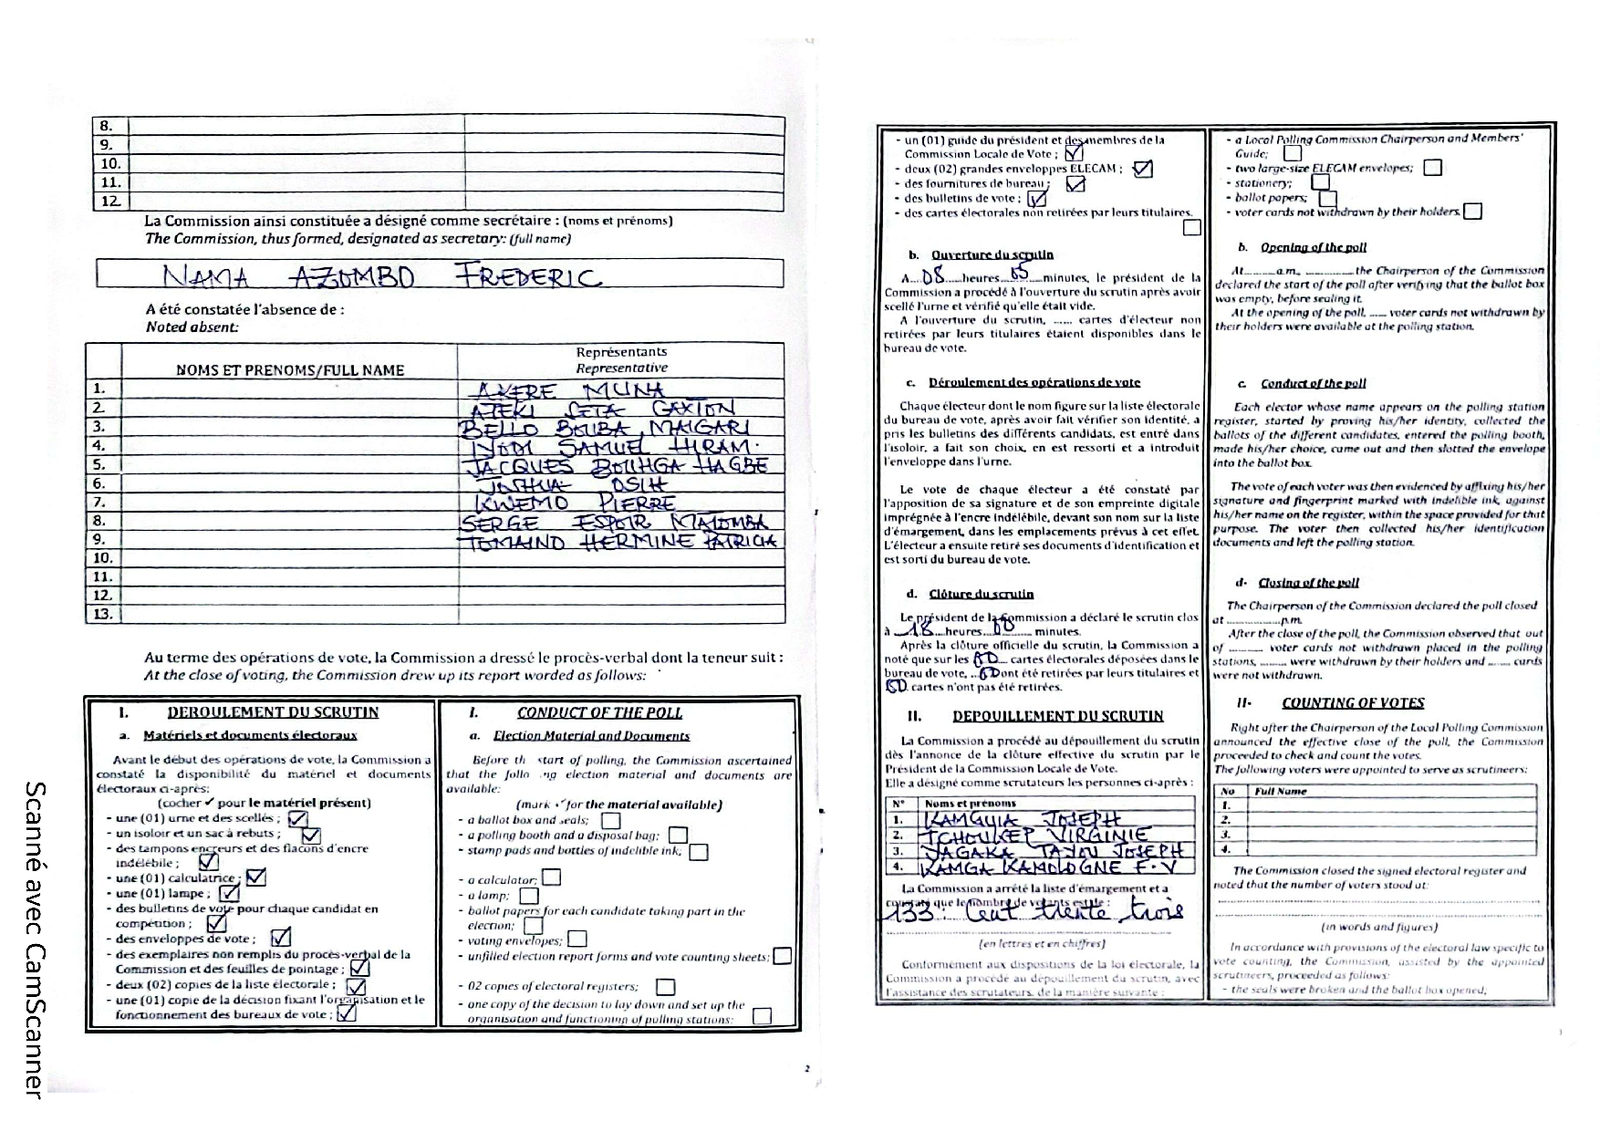 8.
9.
10.
11.
12.
La Commission ainsi constituée a désigné comme secrétaire : (noms et prénoms)
The Commission, thus formed, designated as secretary: (full name)
NAMA AZOMBO FREDERIC
A été constatée l'absence de :
Noted absent:
NOMS ET PRENOMS/FULL NAME
Représentants
Representative
1. AKERE MUNA
2. ATEKI SETA CAXTON
3. BELLO BOUBA MAIGARI
4. IYODI SAMUEL HIRAM
5. JACQUES BOUHGA HAGBE
6. JOSHUA OSIH
7. KWEMO PIERRE
8. SERGE ESPOIR MATOMBA
9. TOMAINO HERMINE PATRICIA
10.
11.
12.
13.
Au terme des opérations de vote, la Commission a dressé le procès-verbal dont la teneur suit :
At the close of voting, the Commission drew up its report worded as follows:
I. DEROULEMENT DU SCRUTIN
a. Matériels et documents électoraux
Avant le début des opérations de vote, la Commission a
constaté la disponibilité du matériel et documents
électoraux ci-après:
(cocher ✓ pour le matériel présent)
- une (01) urne et des scellés ; ☑
- un isoloir et un sac à rebuts ; ☑
- des tampons encreurs et des flacons d'encre
indélébile ; ☑
- une (01) calculatrice ; ☑
- une (01) lampe ; ☑
- des bulletins de vote pour chaque candidat en
compétition ; ☑
- des enveloppes de vote ; ☑
- des exemplaires non remplis du procès-verbal de la
Commission et des feuilles de pointage ; ☑
- deux (02) copies de la liste électorale ; ☑
- une (01) copie de la décision fixant l'organisation et le
fonctionnement des bureaux de vote ; ☑
I. CONDUCT OF THE POLL
a. Election Material and Documents
Before the start of polling, the Commission ascertained
that the following election material and documents are
available:
(mark ✓ for the material available)
- a ballot box and seals; ☐
- a polling booth and a disposal bag; ☐
- stamp pads and bottles of indelible ink; ☐
- a calculator; ☐
- a lamp; ☐
- ballot papers for each candidate taking part in the
election; ☐
- voting envelopes; ☐
- unfilled election report forms and vote counting sheets; ☐
- 02 copies of electoral registers; ☐
- one copy of the decision to lay down and set up the
organisation and functioning of polling stations; ☐
2
- un (01) guide du président et des membres de la
Commission Locale de Vote ; ☑
- deux (02) grandes enveloppes ELECAM ; ☑
- des fournitures de bureau ; ☑
- des bulletins de vote ; ☑
- des cartes électorales non retirées par leurs titulaires.
☐
b. Ouverture du scrutin
A...08....heures..05...minutes, le président de la
Commission a procédé à l'ouverture du scrutin après avoir
scellé l'urne et vérifié qu'elle était vide.
A l'ouverture du scrutin, ...... cartes d'électeur non
retirées par leurs titulaires étaient disponibles dans le
bureau de vote.
c. Déroulement des opérations de vote
Chaque électeur dont le nom figure sur la liste électorale
du bureau de vote, après avoir fait vérifier son identité, a
pris les bulletins des différents candidats, est entré dans
l'isoloir, a fait son choix, en est ressorti et a introduit
l'enveloppe dans l'urne.
Le vote de chaque électeur a été constaté par
l'apposition de sa signature et de son empreinte digitale
imprégnée à l'encre indélébile, devant son nom sur la liste
d'émargement, dans les emplacements prévus à cet effet.
L'électeur a ensuite retiré ses documents d'identification et
est sorti du bureau de vote.
d. Clôture du scrutin
Le président de la Commission a déclaré le scrutin clos
à ..18...heures..00...... minutes.
Après la clôture officielle du scrutin, la Commission a
noté que sur les cartes électorales déposées dans le
bureau de vote, ont été retirées par leurs titulaires et
cartes n'ont pas été retirées.
II. DEPOUILLEMENT DU SCRUTIN
La Commission a procédé au dépouillement du scrutin
dès l'annonce de la clôture effective du scrutin par le
Président de la Commission Locale de Vote.
Elle a désigné comme scrutateurs les personnes ci-après :
N° Noms et prénoms
1. KAMGUIA JOSEPH
2. TCHOUKEP VIRGINIE
3. JAGAKA TAJOU JOSEPH
4. KAMGA KAMOLOGNE F.V
La Commission a arrêté la liste d'émargement et a
constaté que le nombre de votants est de :
133 : Cent trente trois
(en lettres et en chiffres)
Conformément aux dispositions de la loi électorale, la
Commission a procédé au dépouillement du scrutin, avec
l'assistance des scrutateurs, de la manière suivante :
- a Local Polling Commission Chairperson and Members'
Guide; ☐
- two large-size ELECAM envelopes; ☐
- stationery; ☐
- ballot papers; ☐
- voter cards not withdrawn by their holders. ☐
b. Opening of the poll
At.........a.m, ............. the Chairperson of the Commission
declared the start of the poll after verifying that the ballot box
was empty, before sealing it.
At the opening of the poll, ...... voter cards not withdrawn by
their holders were available at the polling station.
c. Conduct of the poll
Each elector whose name appears on the polling station
register, started by proving his/her identity, collected the
ballots of the different candidates, entered the polling booth,
made his/her choice, came out and then slotted the envelope
into the ballot box.
The vote of each voter was then evidenced by affixing his/her
signature and fingerprint marked with indelible ink, against
his/her name on the register, within the space provided for that
purpose. The voter then collected his/her identification
documents and left the polling station.
d- Closing of the poll
The Chairperson of the Commission declared the poll closed
at ................p.m.
After the close of the poll, the Commission observed that out
of ......... voter cards not withdrawn placed in the polling
stations, ......... were withdrawn by their holders and ....... cards
were not withdrawn.
II- COUNTING OF VOTES
Right after the Chairperson of the Local Polling Commission
announced the effective close of the poll, the Commission
proceeded to check and count the votes.
The following voters were appointed to serve as scrutineers:
No Full Name
1.
2.
3.
4.
The Commission closed the signed electoral register and
noted that the number of voters stood at:
(in words and figures)
In accordance with provisions of the electoral law specific to
vote counting, the Commission, assisted by the appointed
scrutineers, proceeded as follows:
- the seals were broken and the ballot box opened,
Scanné avec CamScanner